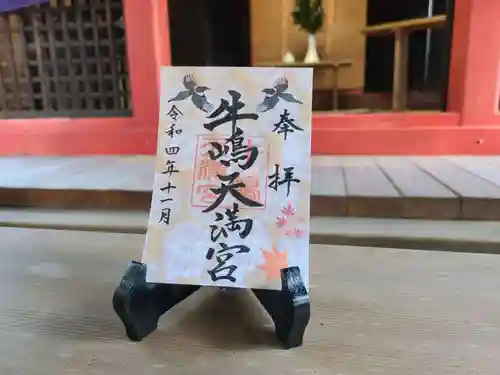 奉拝
牛嶋天満宮
令和四年十一月